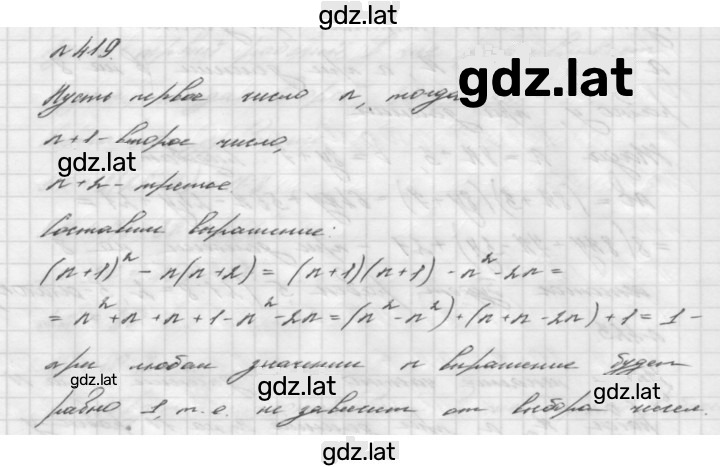 gdz.lat
№419.
gdz.lat
Пусть первое число n, тогда
n+1 - второе число,
gdz.lat
n+2 - третье.
Составим выражение:
(n+1)² - n(n+2) = (n+1)(n+1) - n² - 2n =
= n² + n + n + 1 - n² - 2n = (n² - n²) + (n + n - 2n) + 1 = 1 -
при любом значении n выражение будет
gdz.lat
gdz.lat
gdz.lat
равно 1, т.е. не зависит от выбора чисел.
gdz.lat